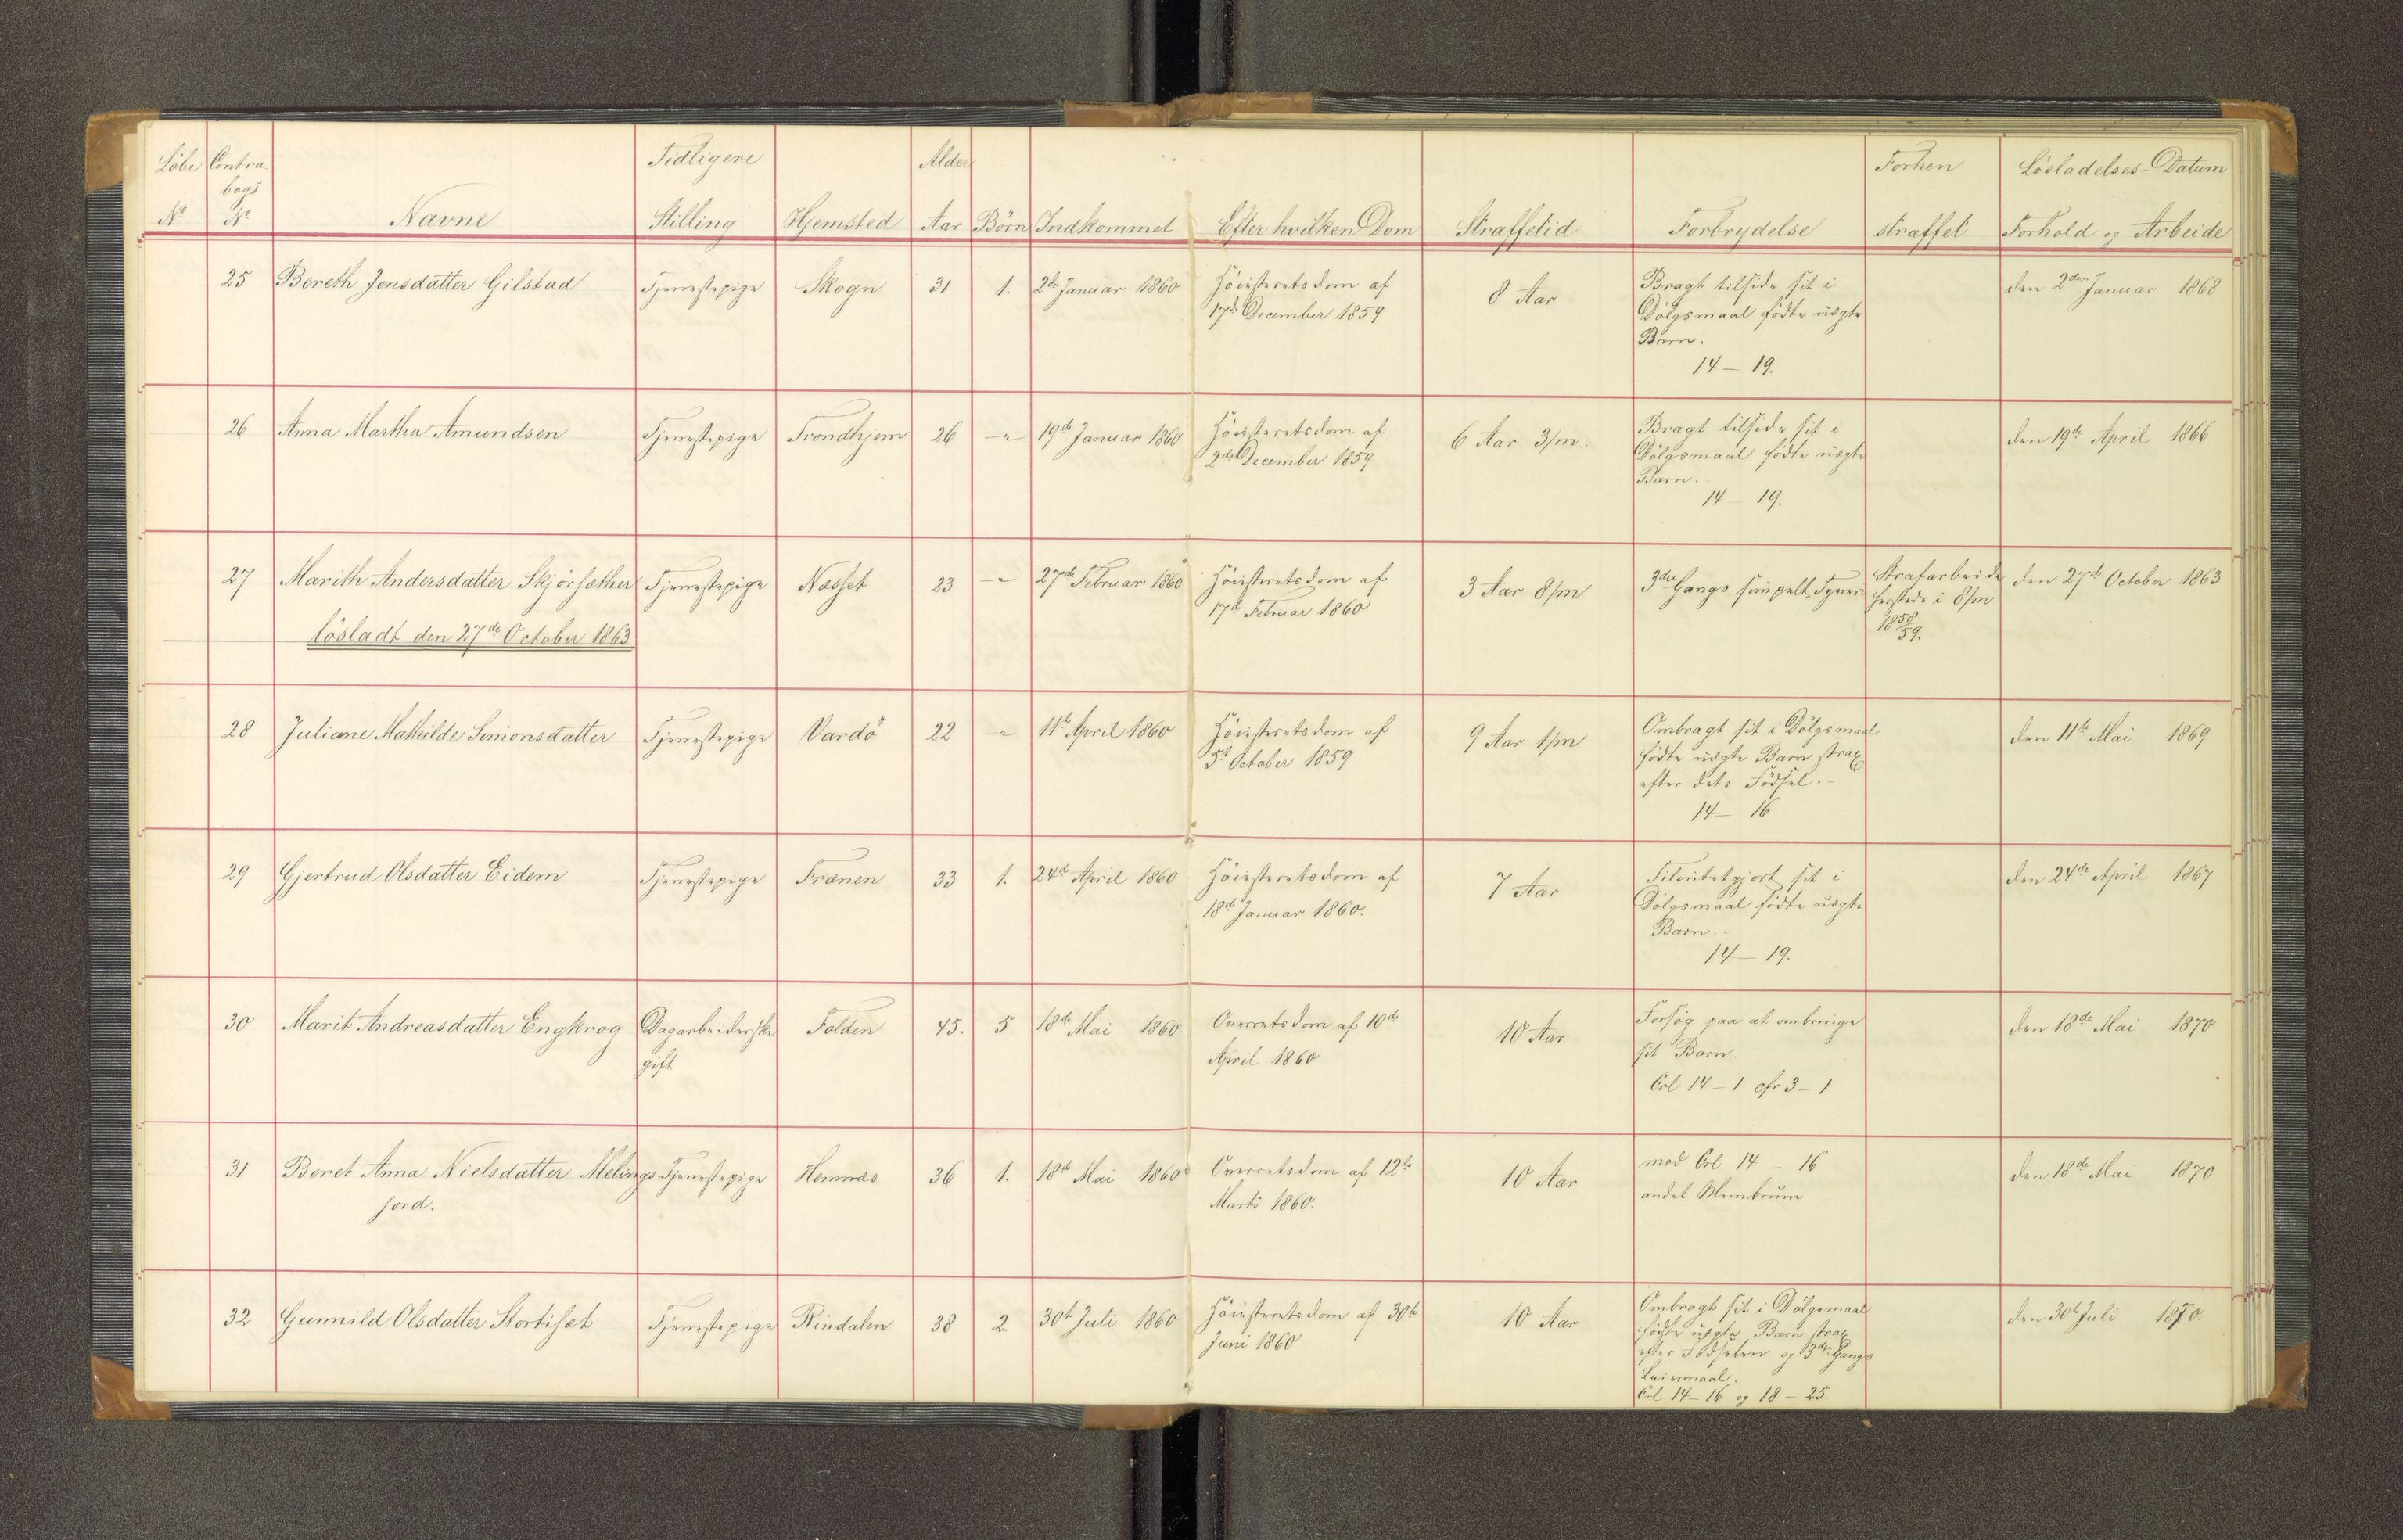 Löbe Contra Tidligere Alder Forhen Lösladelses-Datum
bogs
No No Navne Stilling Hjemsted Aar Börn Indkommet Efter hvilken Dom Straffetid Forbrydelse straffet Forhold og Arbeide
25 Bereth Jensdatter Gilstad Tjenestepige Skogn 31 1. 2den Januar 1860 Höiesteretsdom af 8 Aar Bragt tilside sit i den 2den Januar 1868
17de December 1859 Dölgsmaal födte uægte
Barn.
14 - 19.
26 Anna Martha Amundsen Tjenestepige Trondhjem 26 -"- 19de Januar 1860 Höiesteretsdom af 6 Aar 3/m. Bragt tilside sit i den 19de April 1866
2den December 1859 Dölgsmaal födte uægte
Barn.
14 - 19.
27 Marith Andersdatter Skjörsæther Tjenestepige Næsset 23 -"- 27de Februar 1860 Höiesteretsdom af 3 Aar 8/m 3die Gangs simpelt Tyveri Strafarbeide den 27de October 1863
17de Februar 1860 hersteds i 8/m
lösladt den 27de October 1863 1858/59.
28 Juliane Mathilde Simonsdatter Tjenestepige Vardö 22 -"- 11te April 1860 Höiesteretsdom af 9 Aar 1/m Ombragt sit i Dölgsmaal den 11te Mai 1869
5te October 1859 födte uægte Barn strax
efter dets Födsel.-
14 - 16
29 Gjertrud Olsdatter Eidem Tjenestepige Frænen 33 1. 24de April 1860 Höiesteretsdom af 7 Aar Tilintetgjort sit i den 24de April 1867
18de Januar 1860. Dölgsmaal födte uægte
Barn.-
14 - 19.
30 Marit Andreasdatter Engkrog Dagarbeiderske Folden 45. 5 18de Mai 1860 Overretsdom af 10de 10 Aar Forsög paa at ombringe den 18de Mai 1870
gift April 1860 sit Barn.
Crl 14-1 cfr 3-1
31 Beret Anna Nielsdatter Melings Tjenestepige Hemnæs 36 1. 18de Mai 1860 Overretsdom af 12te 10 Aar mod Crl 14 - 16 den 18de Mai 1870
jord. Marts 1860. andet Membrum
32 Gunnild Olsdatter Stortiset Tjenestepige Rindalen 38 2. 30te Juli 1860 Höiesteretsdom af 30te 10 Aar Ombragt sit i Dölgsmaal den 30te Juli 1870.
Juni 1860 födte uægte Barn strax
efter Födselen og 3die Gangs
Leiermaal.
Crl 14-16 og 18-25.